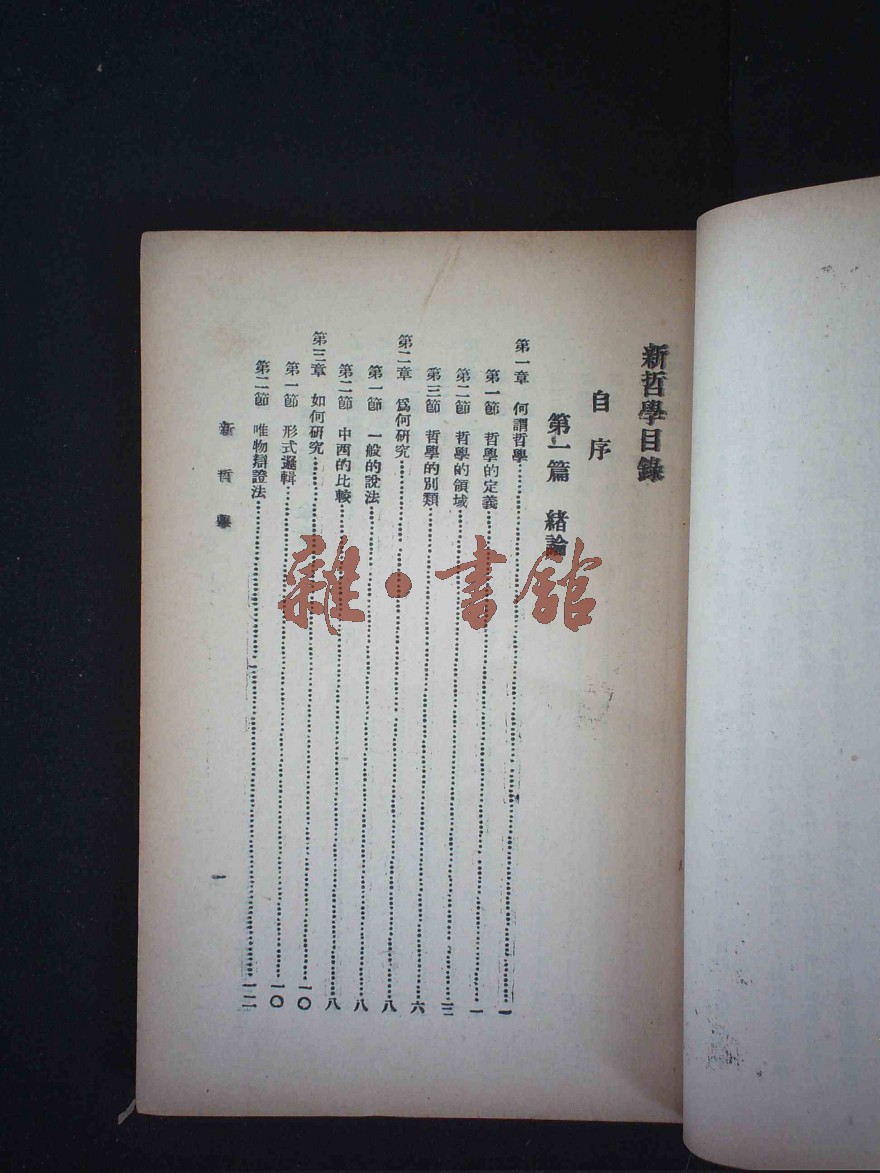 新哲學目錄
自序
第一篇 緒論
第一章 何謂哲學……一
第一節 哲學的定義……一
第二節 哲學的領域……三
第三節 哲學的別類……六
第二章 爲何研究……八
第一節 一般的說法……八
第二節 中西的比較……八
第三章 如何研究……一〇
第一節 形式邏輯……一〇
第二節 唯物辯證法……一二
新哲學
一
雜·書館